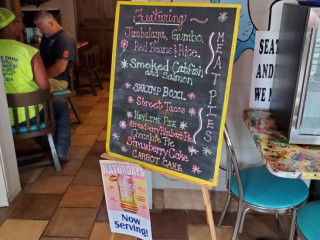 Featuring
Jambalaya, Gumbo,
Red Beans & Rice
Smoked Catfish
and Salmon
SHRIMP BOIL
Street Tacos
KEY LIME PIE
Strawberry Rhubarb
Chocolate Pie
Strawberry Cake
CARROT CAKE
MEAT PIES
SEAT
AND
WE
Now
Serving!